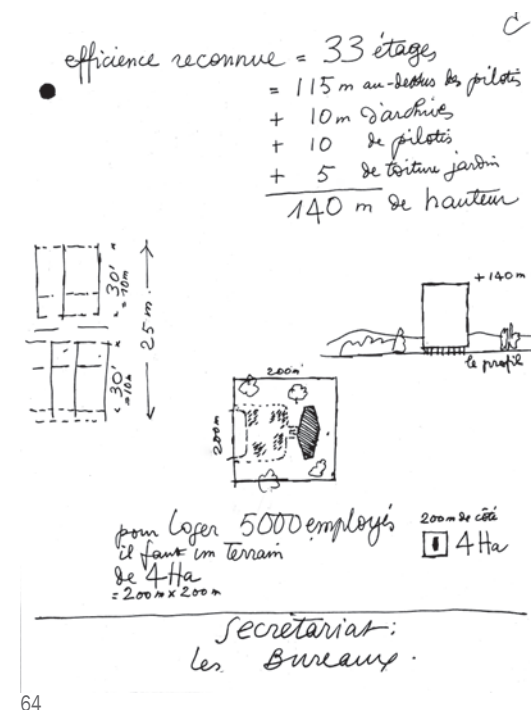 C
efficience reconnue = 33 étages
= 115 m au-dessus des pilotis
+ 10 m d'archives
+ 10 de pilotis
+ 5 de toiture jardin
140 m de hauteur
30'
= 10m
25 m.
30'
= 10m
+ 140 m
le profil
200m
200m
pour loger 5000 employés
il faut un terrain
de 4 Ha
= 200 m x 200 m
200 m de côté
4 Ha
Secrétariat :
les Bureaux.
64